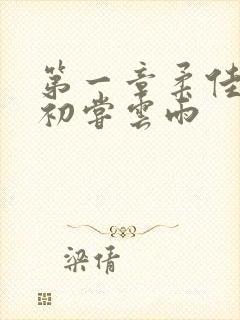 第一章柔佳
初尝雲雨
梁倩